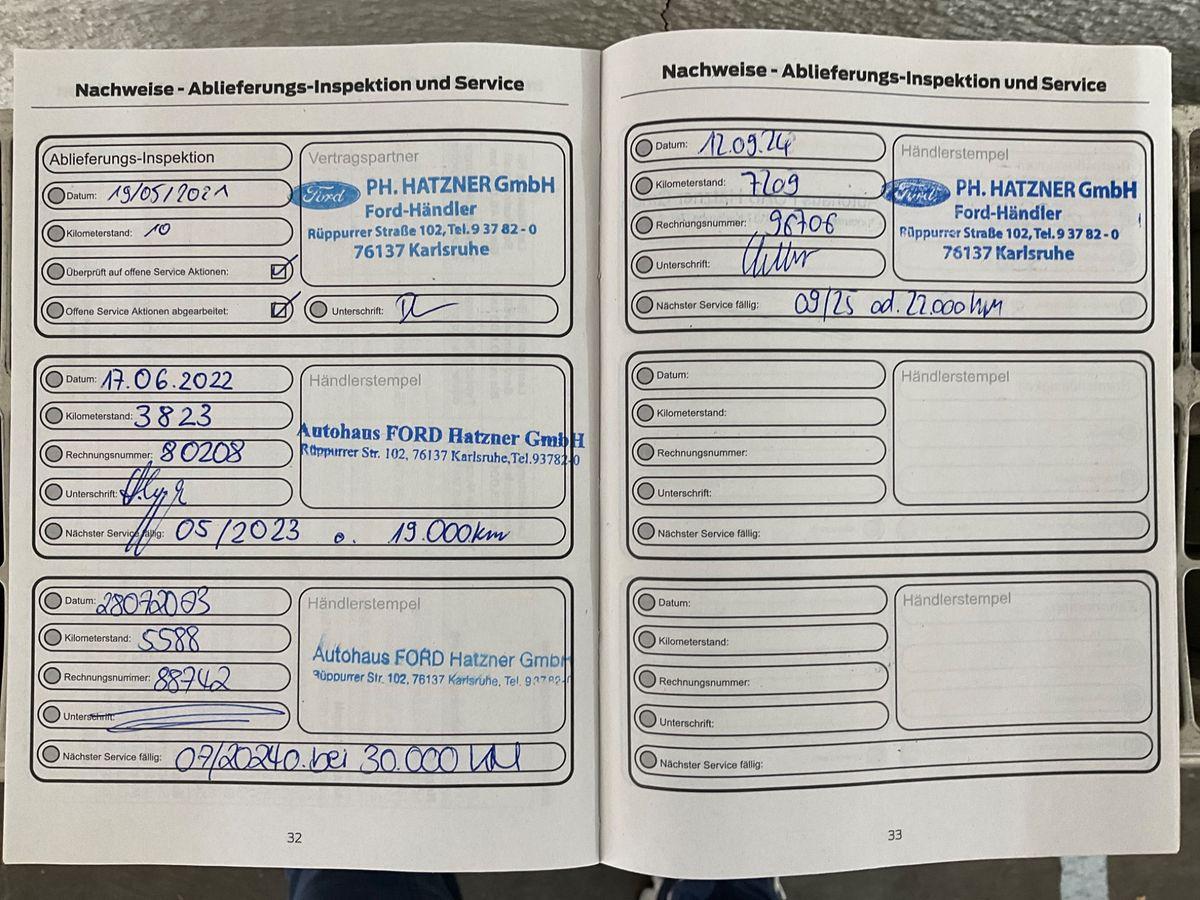 Nachweise - Ablieferungs-Inspektion und Service
Ablieferungs-Inspektion
Datum: 19/05/2021
Kilometerstand: 10
Überprüft auf offene Service Aktionen:
Offene Service Aktionen abgearbeitet:
Vertragspartner
Ford
PH. HATZNER GmbH
Ford-Händler
Rüppurrer Straße 102, Tel. 9 37 82 - 0
76137 Karlsruhe
Unterschrift:
Datum: 17.06.2022
Kilometerstand: 3823
Rechnungsnummer: 80208
Unterschrift:
Nächster Service fällig: 05/2023 o. 19.000km
Händlerstempel
Autohaus FORD Hatzner GmbH
Rüppurrer Str. 102, 76137 Karlsruhe, Tel. 93782-0
Datum: 28072023
Kilometerstand: 5588
Rechnungsnummer: 88742
Unterschrift:
Nächster Service fällig: 07/2024 o. bei 30.000 KM
Händlerstempel
Autohaus FORD Hatzner GmbH
Rüppurrer Str. 102, 76137 Karlsruhe, Tel. 93782-0
32
Nachweise - Ablieferungs-Inspektion und Service
Datum: 12.09.24
Kilometerstand: 7209
Rechnungsnummer: 96706
Unterschrift:
Nächster Service fällig: 09/25 od. 22.000 km
Händlerstempel
Ford
PH. HATZNER GmbH
Ford-Händler
Rüppurrer Straße 102, Tel. 9 37 82 - 0
76137 Karlsruhe
Datum:
Kilometerstand:
Rechnungsnummer:
Unterschrift:
Nächster Service fällig:
Händlerstempel
Datum:
Kilometerstand:
Rechnungsnummer:
Unterschrift:
Nächster Service fällig:
Händlerstempel
33